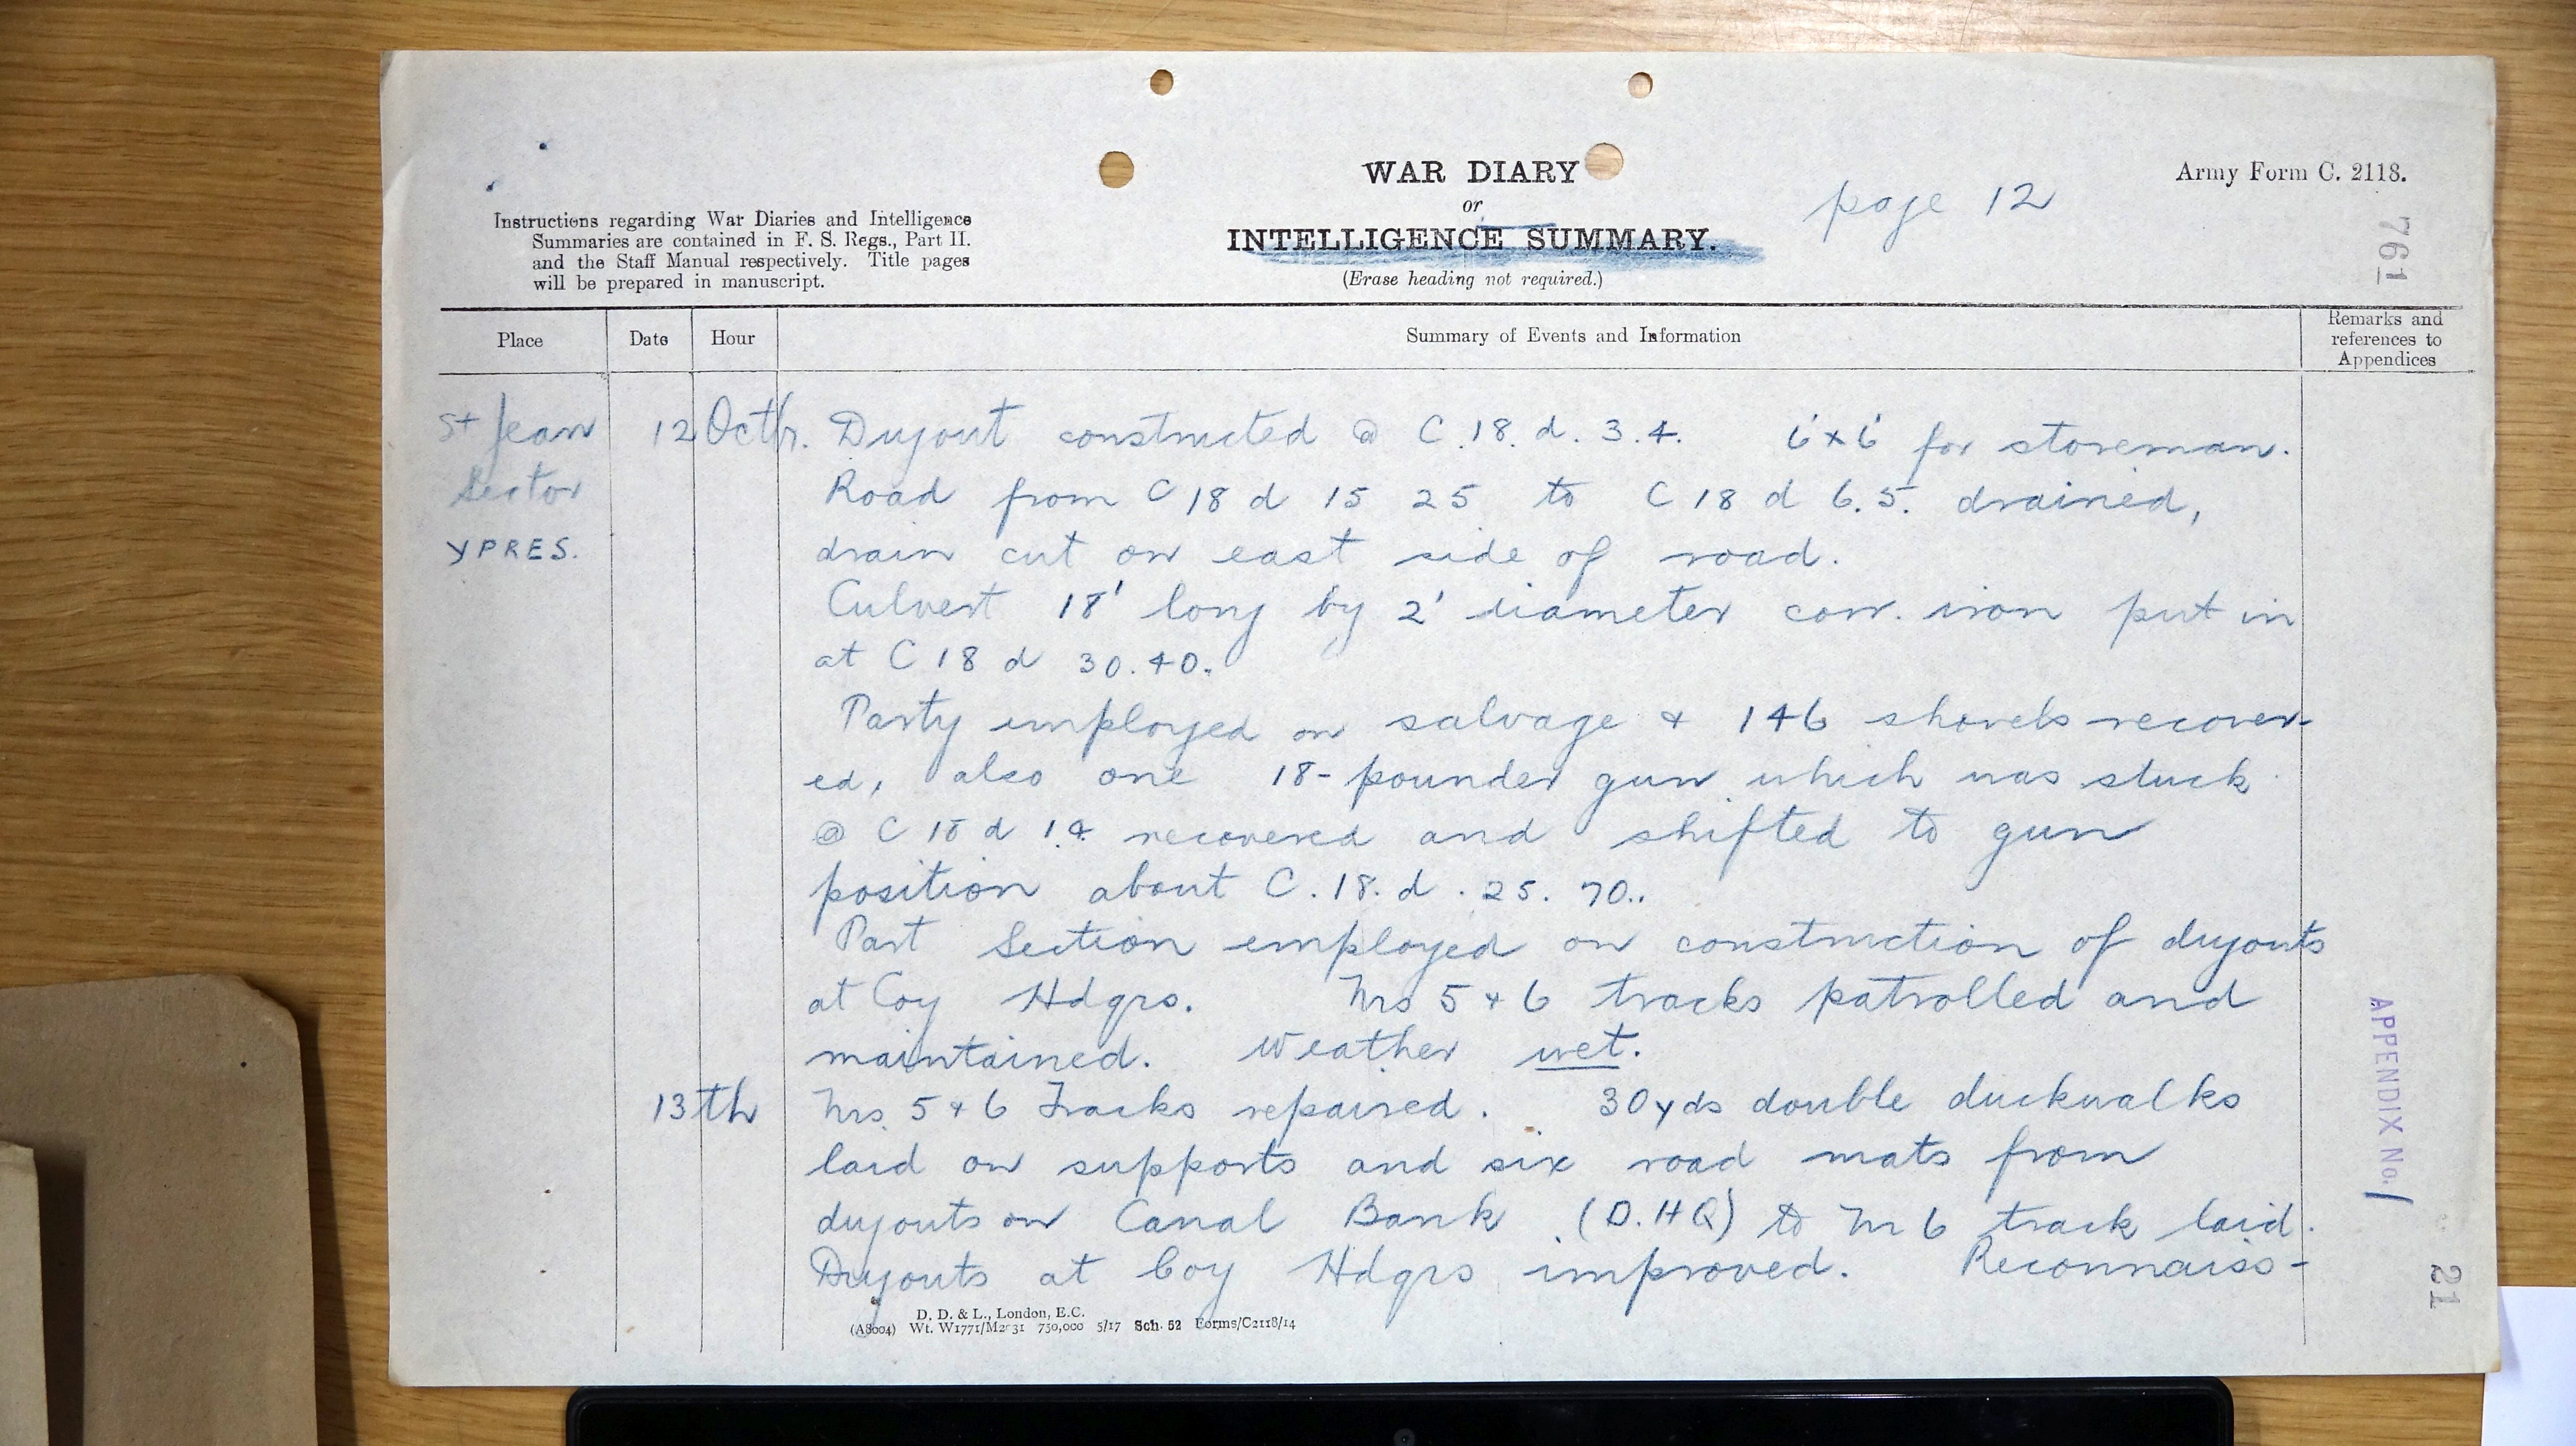 WAR DIARY
or
INTELLIGENCE SUMMARY.
(Erase heading not required.)
page 12
Army Form C. 2118.
761
Instructions regarding War Diaries and Intelligence
Summaries are contained in F. S. Regs., Part II.
and the Staff Manual respectively. Title pages
will be prepared in manuscript.
Place Date Hour Summary of Events and Information Remarks and references to Appendices
St Jean Sector YPRES.
12 Octbr. Dugout constructed @ C.18.d.3.4. 6'x6' for storeman.
Road from C 18 d 15 25 to C 18 d 6.5. drained,
drain cut on east side of road.
Culvert 18' long by 2' diameter corr. iron put in
at C 18 d 30.40.
Party employed on salvage & 146 shovels recover-
ed, also one 18-pounder gun which was stuck
@ C d 1.4 recovered and shifted to gun
position about C.18.d.25.70..
Part Section employed on construction of dugouts
at Coy Hdqrs. Nrs 5 & 6 tracks patrolled and
maintained. Weather wet.
13th Nrs. 5 & 6 Tracks repaired. 30yds double duckwalks
laid on supports and six road mats from
dugouts on Canal Bank (D.HQ) to Nr 6 track laid.
Dugouts at Coy Hdqrs improved. Reconnaiss-
APPENDIX No. 1
21
D. D. & L., London, E.C.
(A8004) Wt. W1771/M2031 750,000 5/17 Sch. 52 Forms/C2118/14